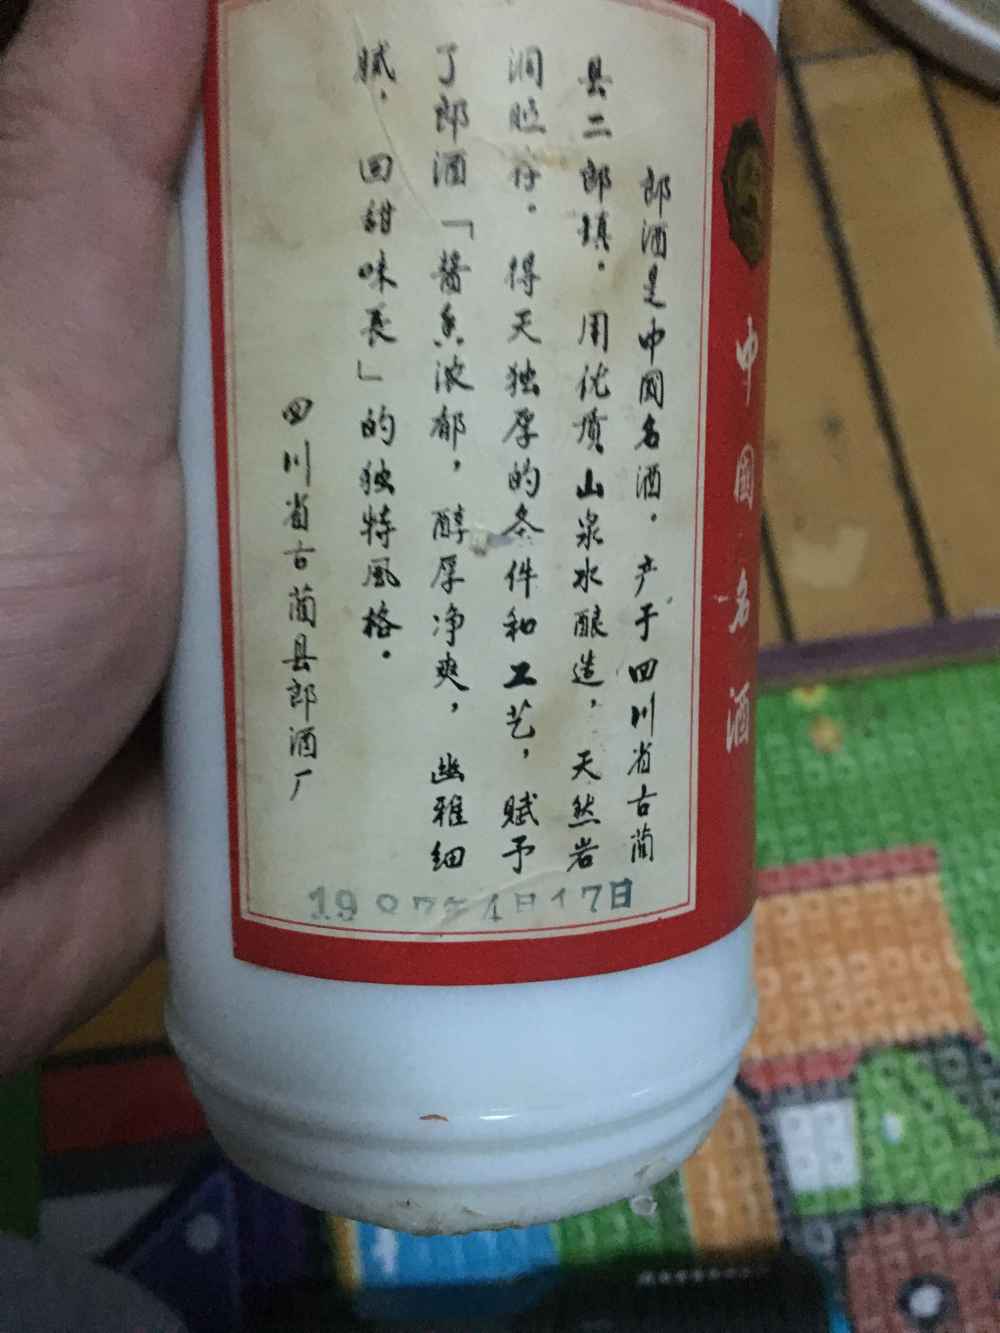 郎酒是中國名酒。产于四川省古蔺
县二郎镇。用优质山泉水酿造，天然岩
洞贮存。得天独厚的条件和工艺，赋予
了郎酒「醬香浓郁，醇厚净爽，幽雅细
腻，回甜味长」的独特風格。
四川省古蔺县郎酒厂
1987年4月17日
中國名酒